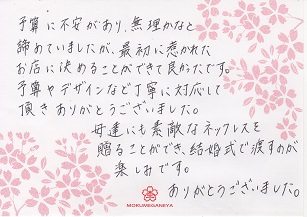 予算に不安があり、無理かなと
諦めていましたが、最初に惹かれた
お店に決めることができて良かったです。
予算やデザインなど丁寧に対応して
頂きありがとうございました。
母達にも素敵なネックレスを
贈ることができ、結婚式で渡すのが
楽しみです。
ありがとうございました。
MOKUMEGANEYA